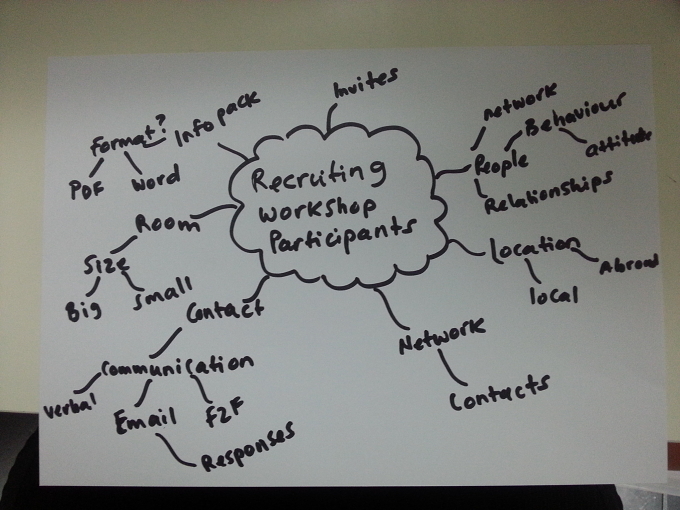 Invites
Info pack
Format?
PDF
word
Recruiting
workshop
Participants
network
Behaviour
attitude
People
Relationships
Room
Size
Big
small
location
Abroad
local
Contact
Communication
verbal
Email
F2F
Responses
Network
Contacts